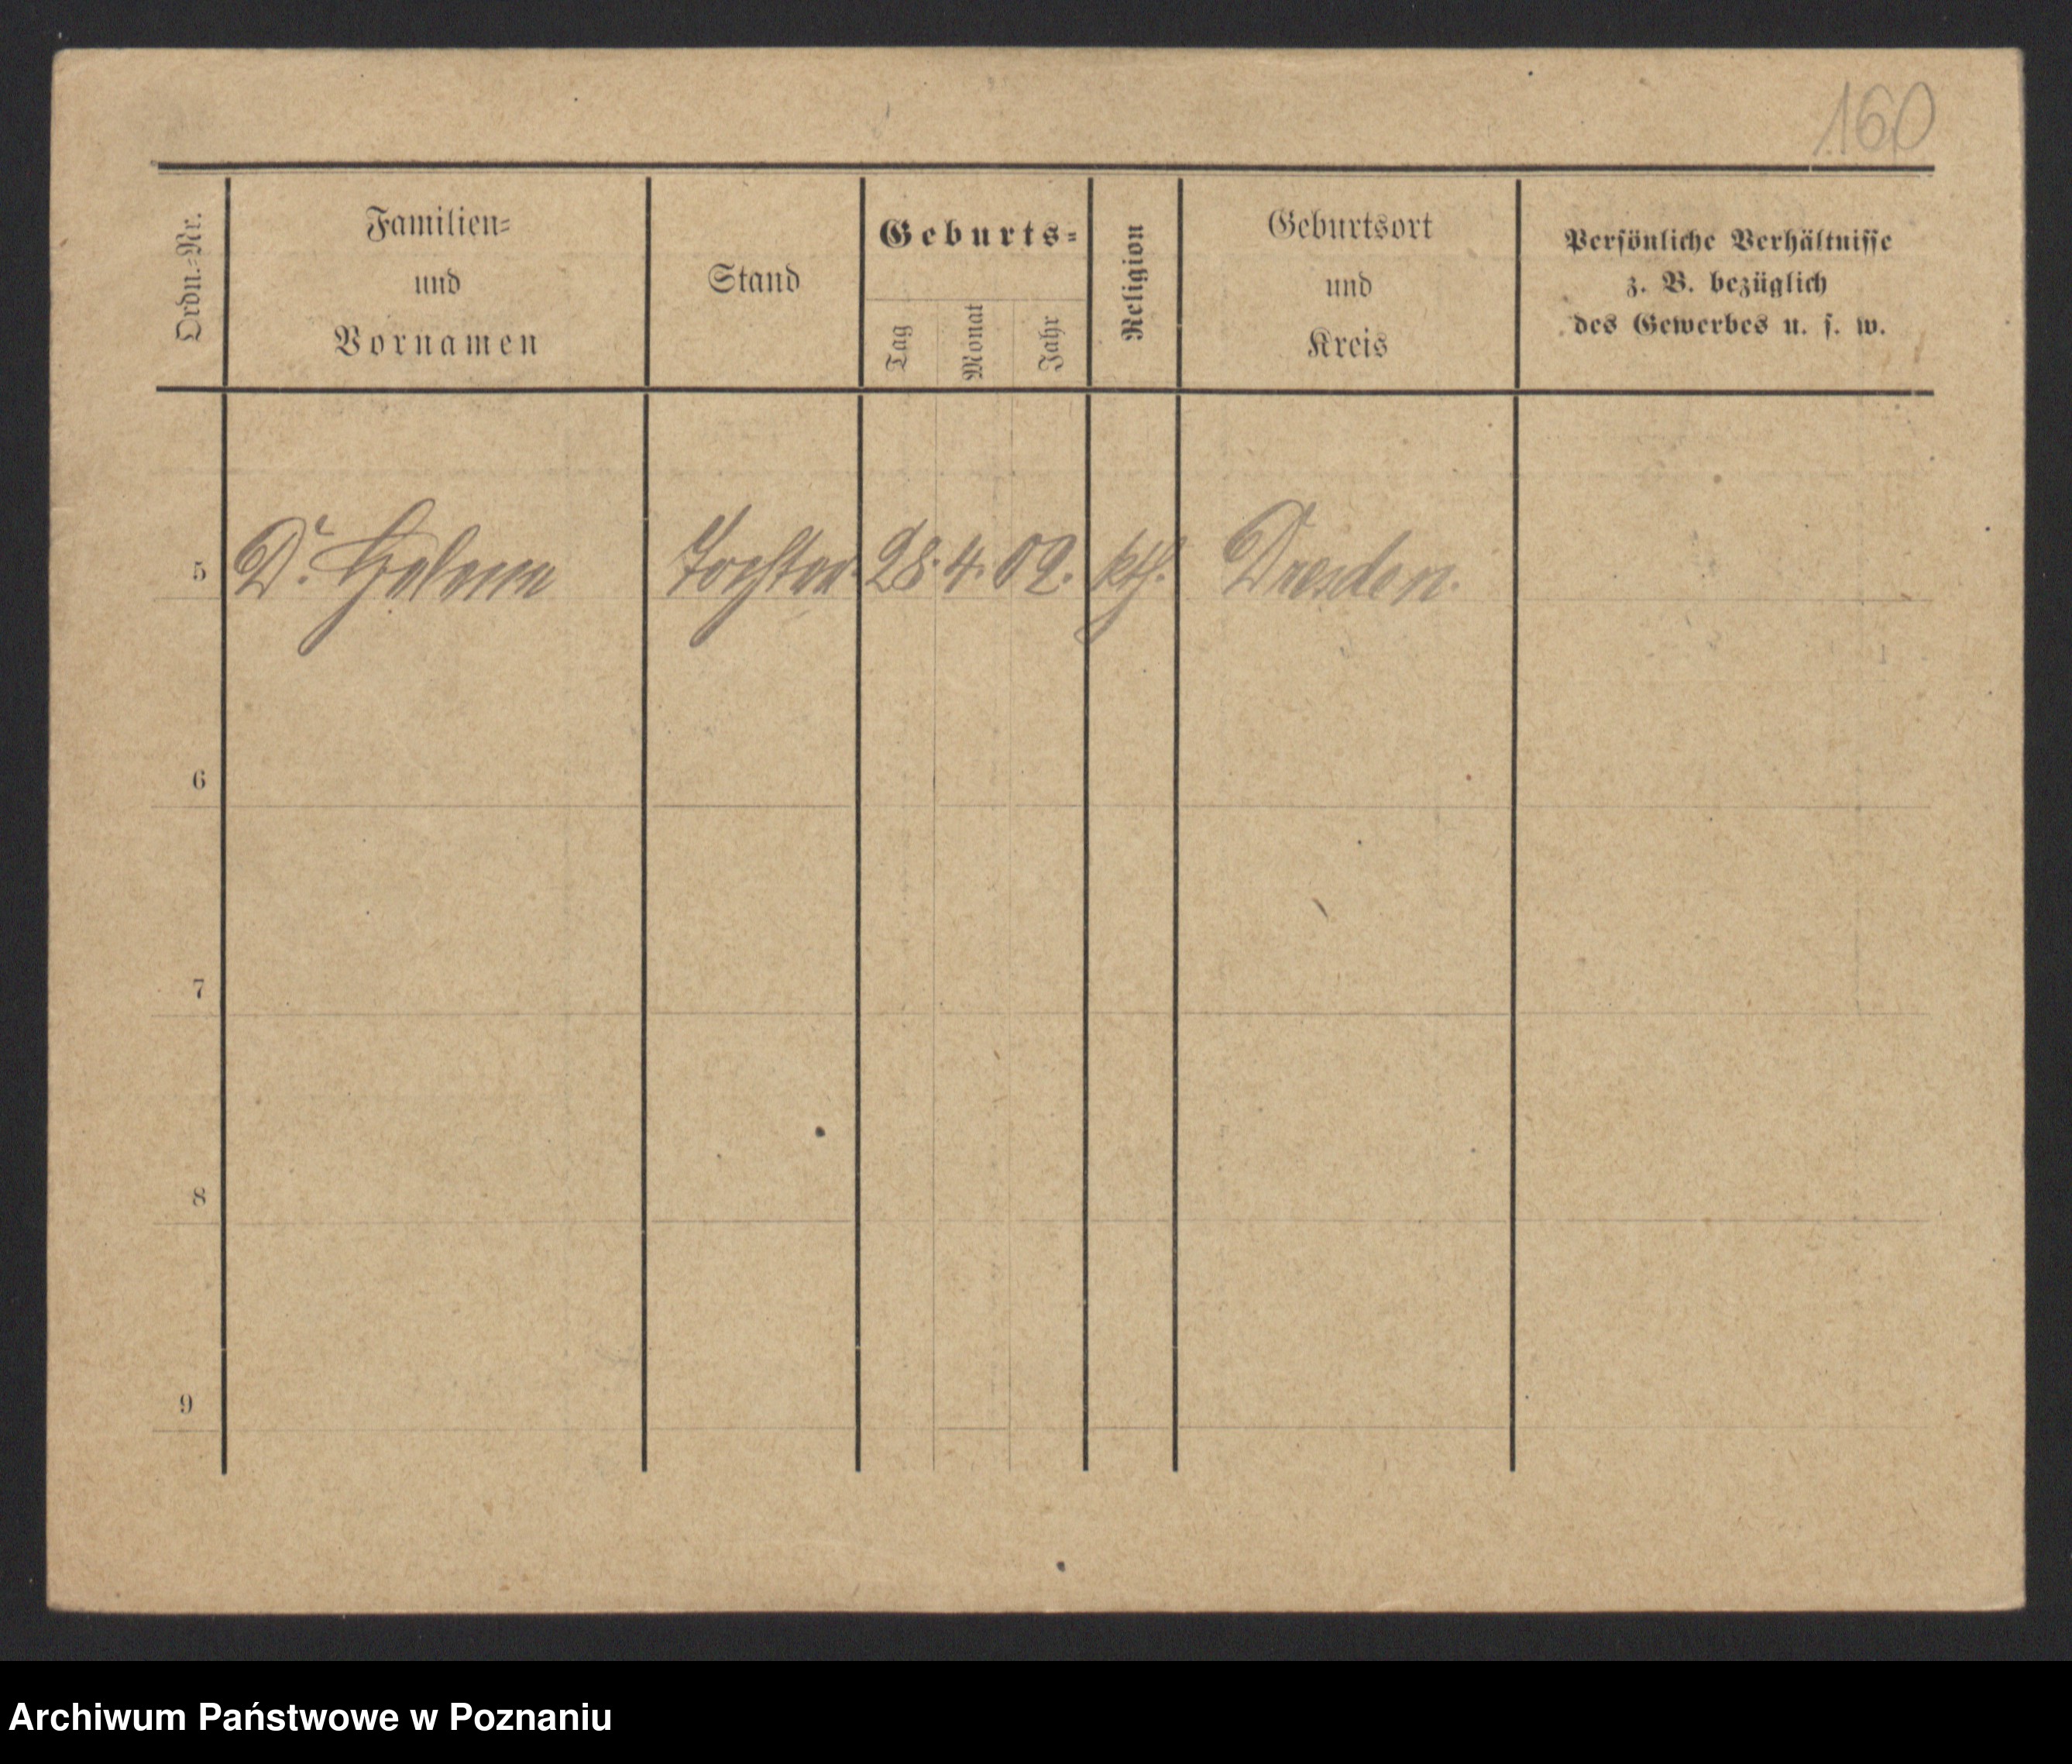 160
Ordn.-Nr.
Familien-
und
Vornamen
Stand
Geburts-
Tag
Monat
Jahr
Religion
Geburtsort
und
Kreis
Persönliche Verhältnisse
z. B. bezüglich
des Gewerbes u. s. w.
5 D. Helene Tochter 28. 4. 02. kth. Dresden.
6
7
8
9
Archiwum Państwowe w Poznaniu